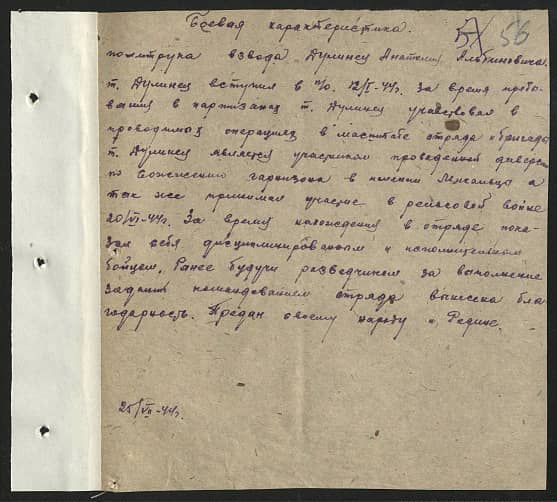 57 56
Боевая характеристика.
политрука взвода Дулинец Анатолия Альбиновича.
т. Дулинец вступил в п/о. 12/I-44г. За время пребы-
вания в партизанах т. Дулинец участвовал в
проводимых операциях в масштабе отряда и бригады
т. Дулинец является участником проведенной диверсии
по сожжению гарнизона в имении а
так же принимал участие в рельсовой войне
20/VI-44г. За время нахождения в отряде пока-
зал себя дисциплинированным и исполнительным
бойцом. Ранее будучи разведчиком за выполнение
задания командованием отряда вынесена бла-
годарность. Предан своему народу и Родине.
25/VII-44г.